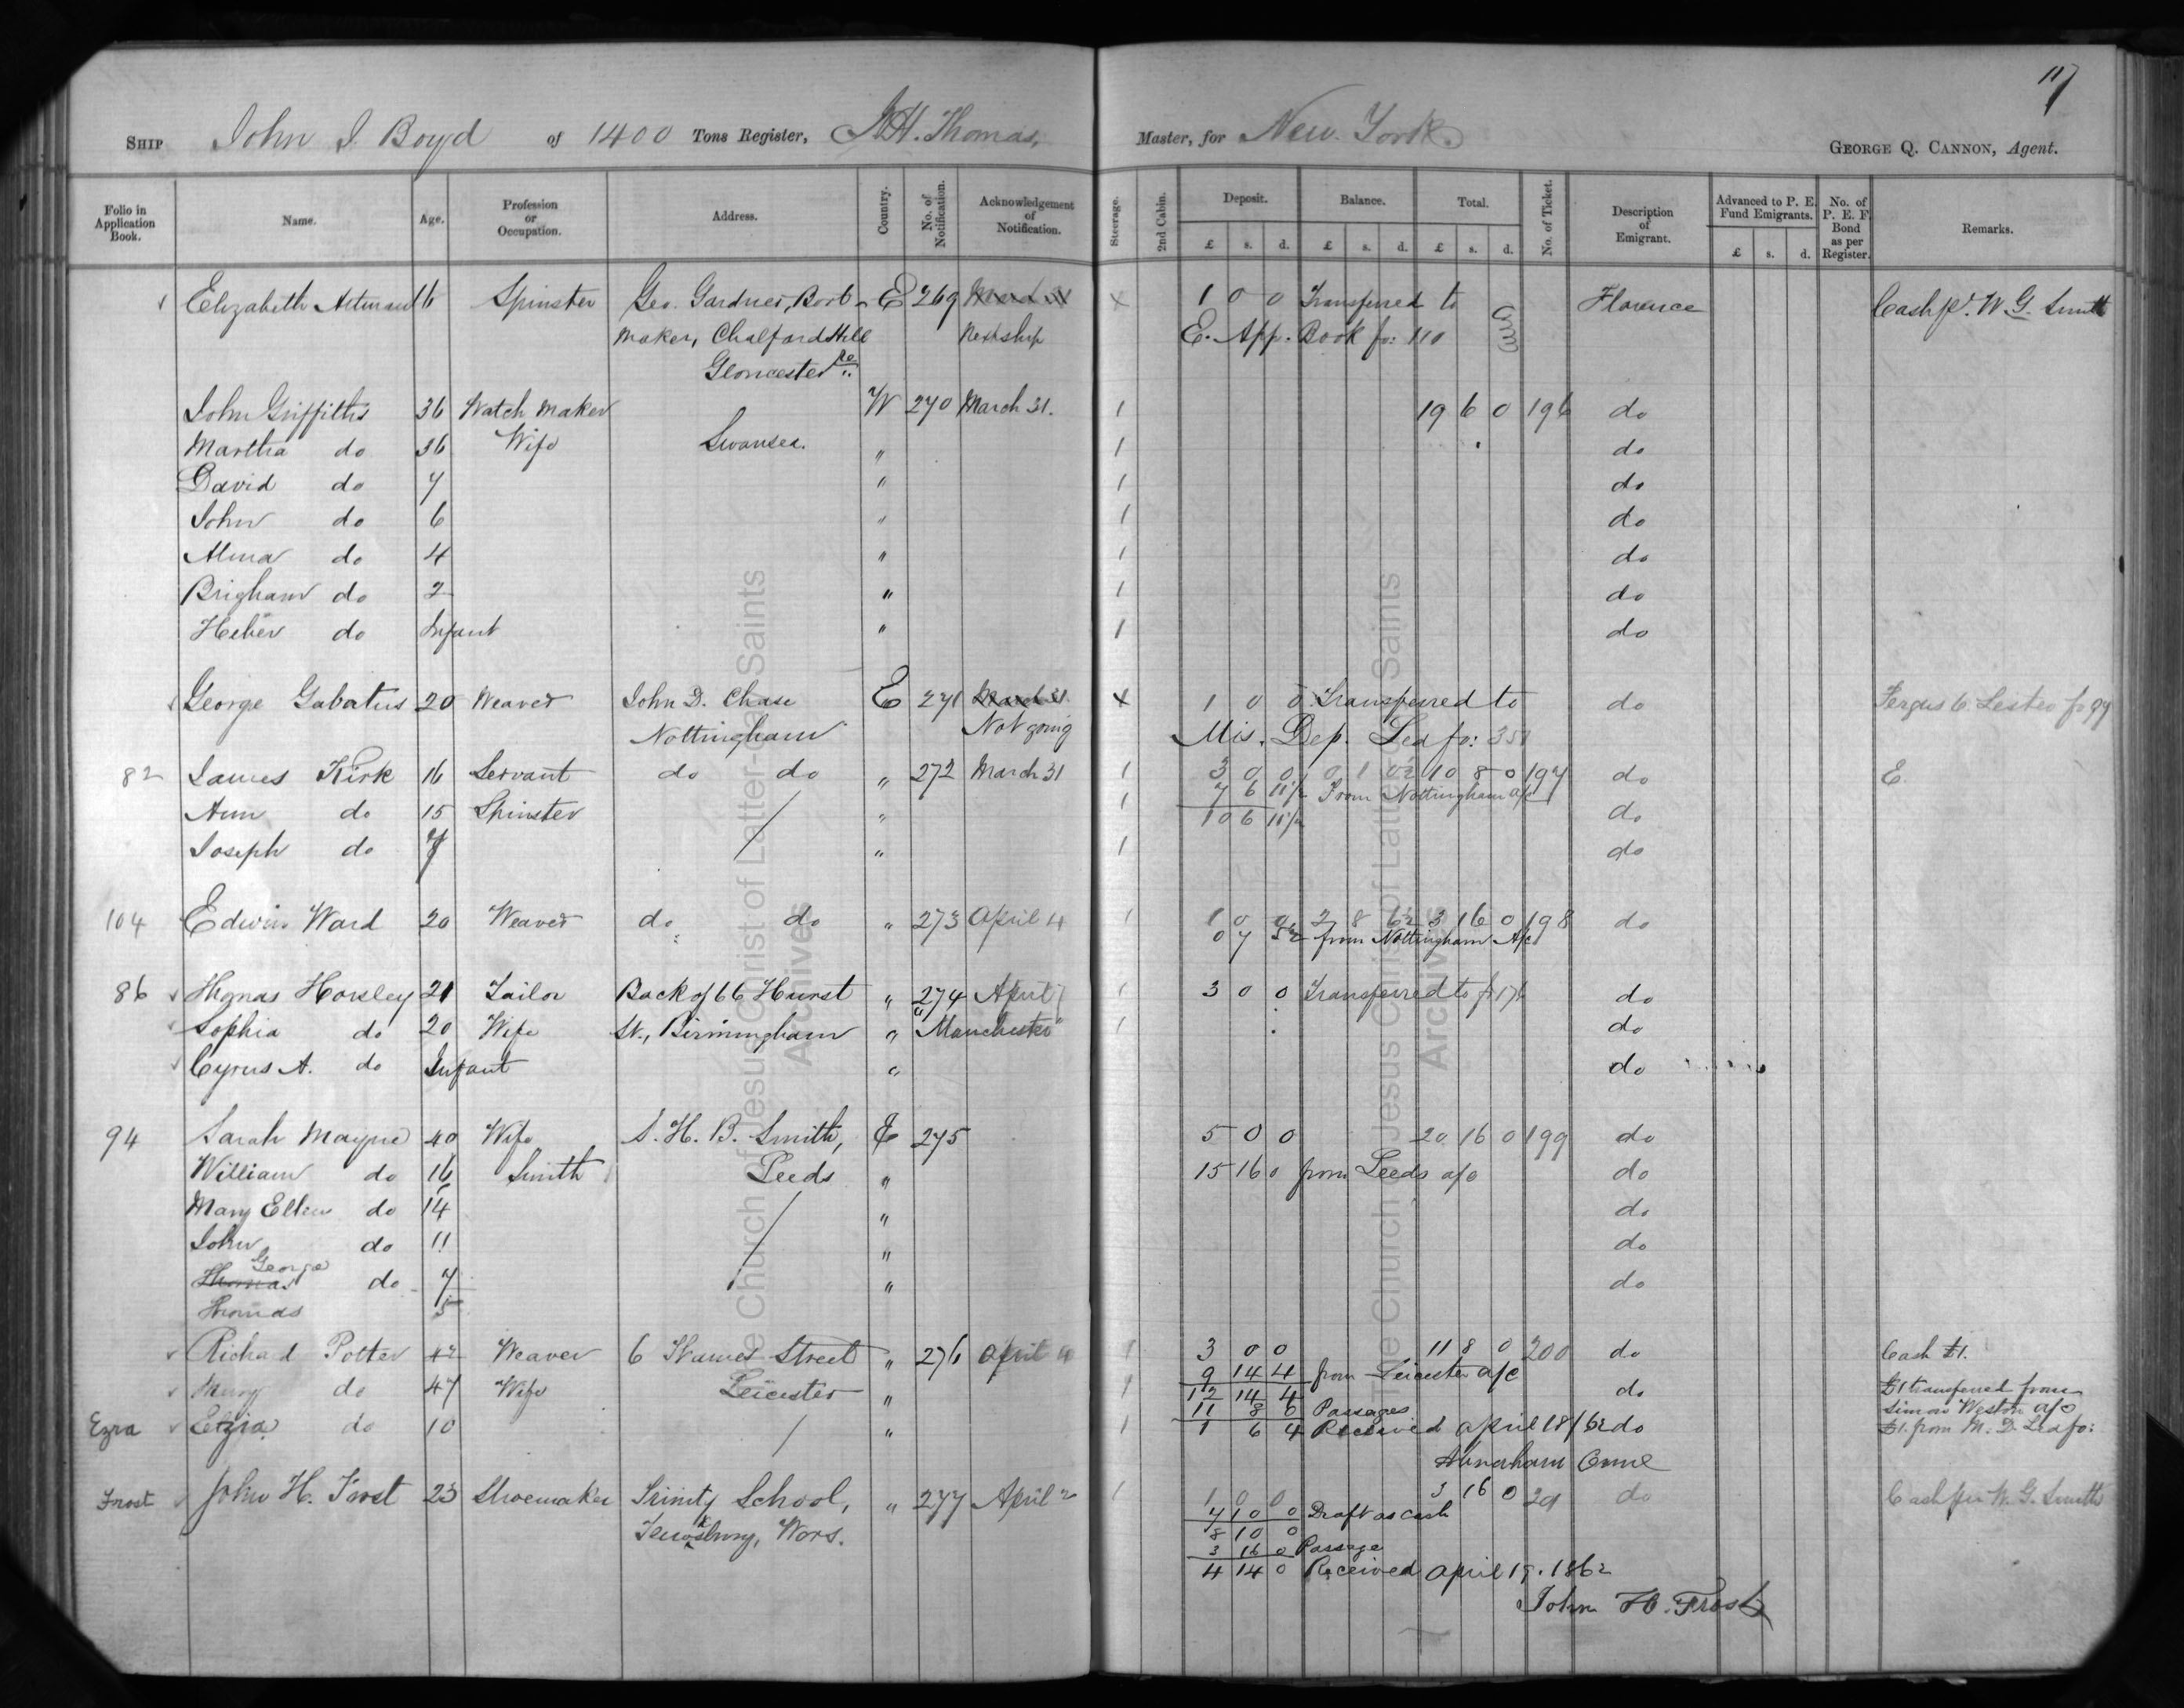 117
SHIP John J. Boyd of 1400 Tons Register, J.H. Thomas, Master, for New York. GEORGE Q. CANNON, Agent.
Folio in Application Book. Name. Age. Profession or Occupation. Address. Country. No. of Notification. Acknowledgement of Notification. Steerage. 2nd Cabin. Deposit. £ s. d. Balance. £ s. d. Total. £ s. d. No. of Ticket. Description of Emigrant. Advanced to P. E. Fund Emigrants. £ s. d. No. of P. E. F. Bond as per Register. Remarks.
Elizabeth 16 Spinster Geo. Gardner, Boot- E 269 March 31 x 1 0 0 Transferred to Florence Cash pr. W. G. Smith
maker, Chalford Hill Next ship E. App. Book fo: 110
Gloucester
John Griffiths 36 Watch maker W 270 March 31. 1 19 6 0 196 do
Martha do 36 Wife Swansea. " 1 do
David do 7 " 1 do
John do 6 " 1 do
Alma do 4 " 1 do
Brigham do 2 " 1 do
Heber do Infant " 1 do
George Gabatus 20 Weaver John D. Chase E 271 March 31 x 1 0 0 Transferred to do
Nottingham Not going Mis. Dep. Led fo: 351
82 James Kirk 16 Servant do do " 272 March 31 1 3 0 0 0 1 0½ 10 8 0 197 do E.
7 6 11½ From Nottingham a/c
Ann do 15 Spinster / " 1 10 6 11½ do
Joseph do 7 " 1 do
104 Edwin Ward 20 Weaver do do " 273 April 4 1 1 0 0 2 8 6½ 3 16 0 198 do
0 7 5½ from Nottingham A/c
86 Thomas Horsley 21 Tailor Back of 66 Hurst " 274 April 1 3 0 0 Transferred to fo 176 do
Sophia do 20 Wife St., Birmingham " "Manchester" 1 do
Cyrus A. do Infant " do
94 Sarah Mayne 40 Wife S. H. B. Smith, E 275 5 0 0 20 16 0 199 do
William do 16 Smith Leeds " 15 16 0 from Leeds a/c do
Mary Ellen do 14 / " do
John do 11 / " do
George
Thomas do 7 / " do
Thomas 5
Richard Potter 42 Weaver 6 Thames Street " 276 April 4 1 3 0 0 11 8 0 200 do Cash £1.
9 14 4 from Leicester a/c
Mary do 47 Wife Leicester " 1 12 14 4 do £1 transferred from
11 8 0 Passages Simon Weston a/c
Ezra Etzia do 10 / " 1 1 6 4 Received April 18/62 do £1. from M. D. Led fo:
Abraham Orme
Frost John H. Forst 23 Shoemaker Trinity School, " 277 April 2 1 1 0 0 3 16 0 201 do Cash per W. G. Smith
Tewksbury, Wors. 7 10 0 Draft as cash
8 10 0
3 16 0 Passage
4 14 0 Received April 19. 1862
John H. Frost
The Church of Jesus Christ of Latter-day Saints
Archives
The Church of Jesus Christ of Latter-day Saints
Archives